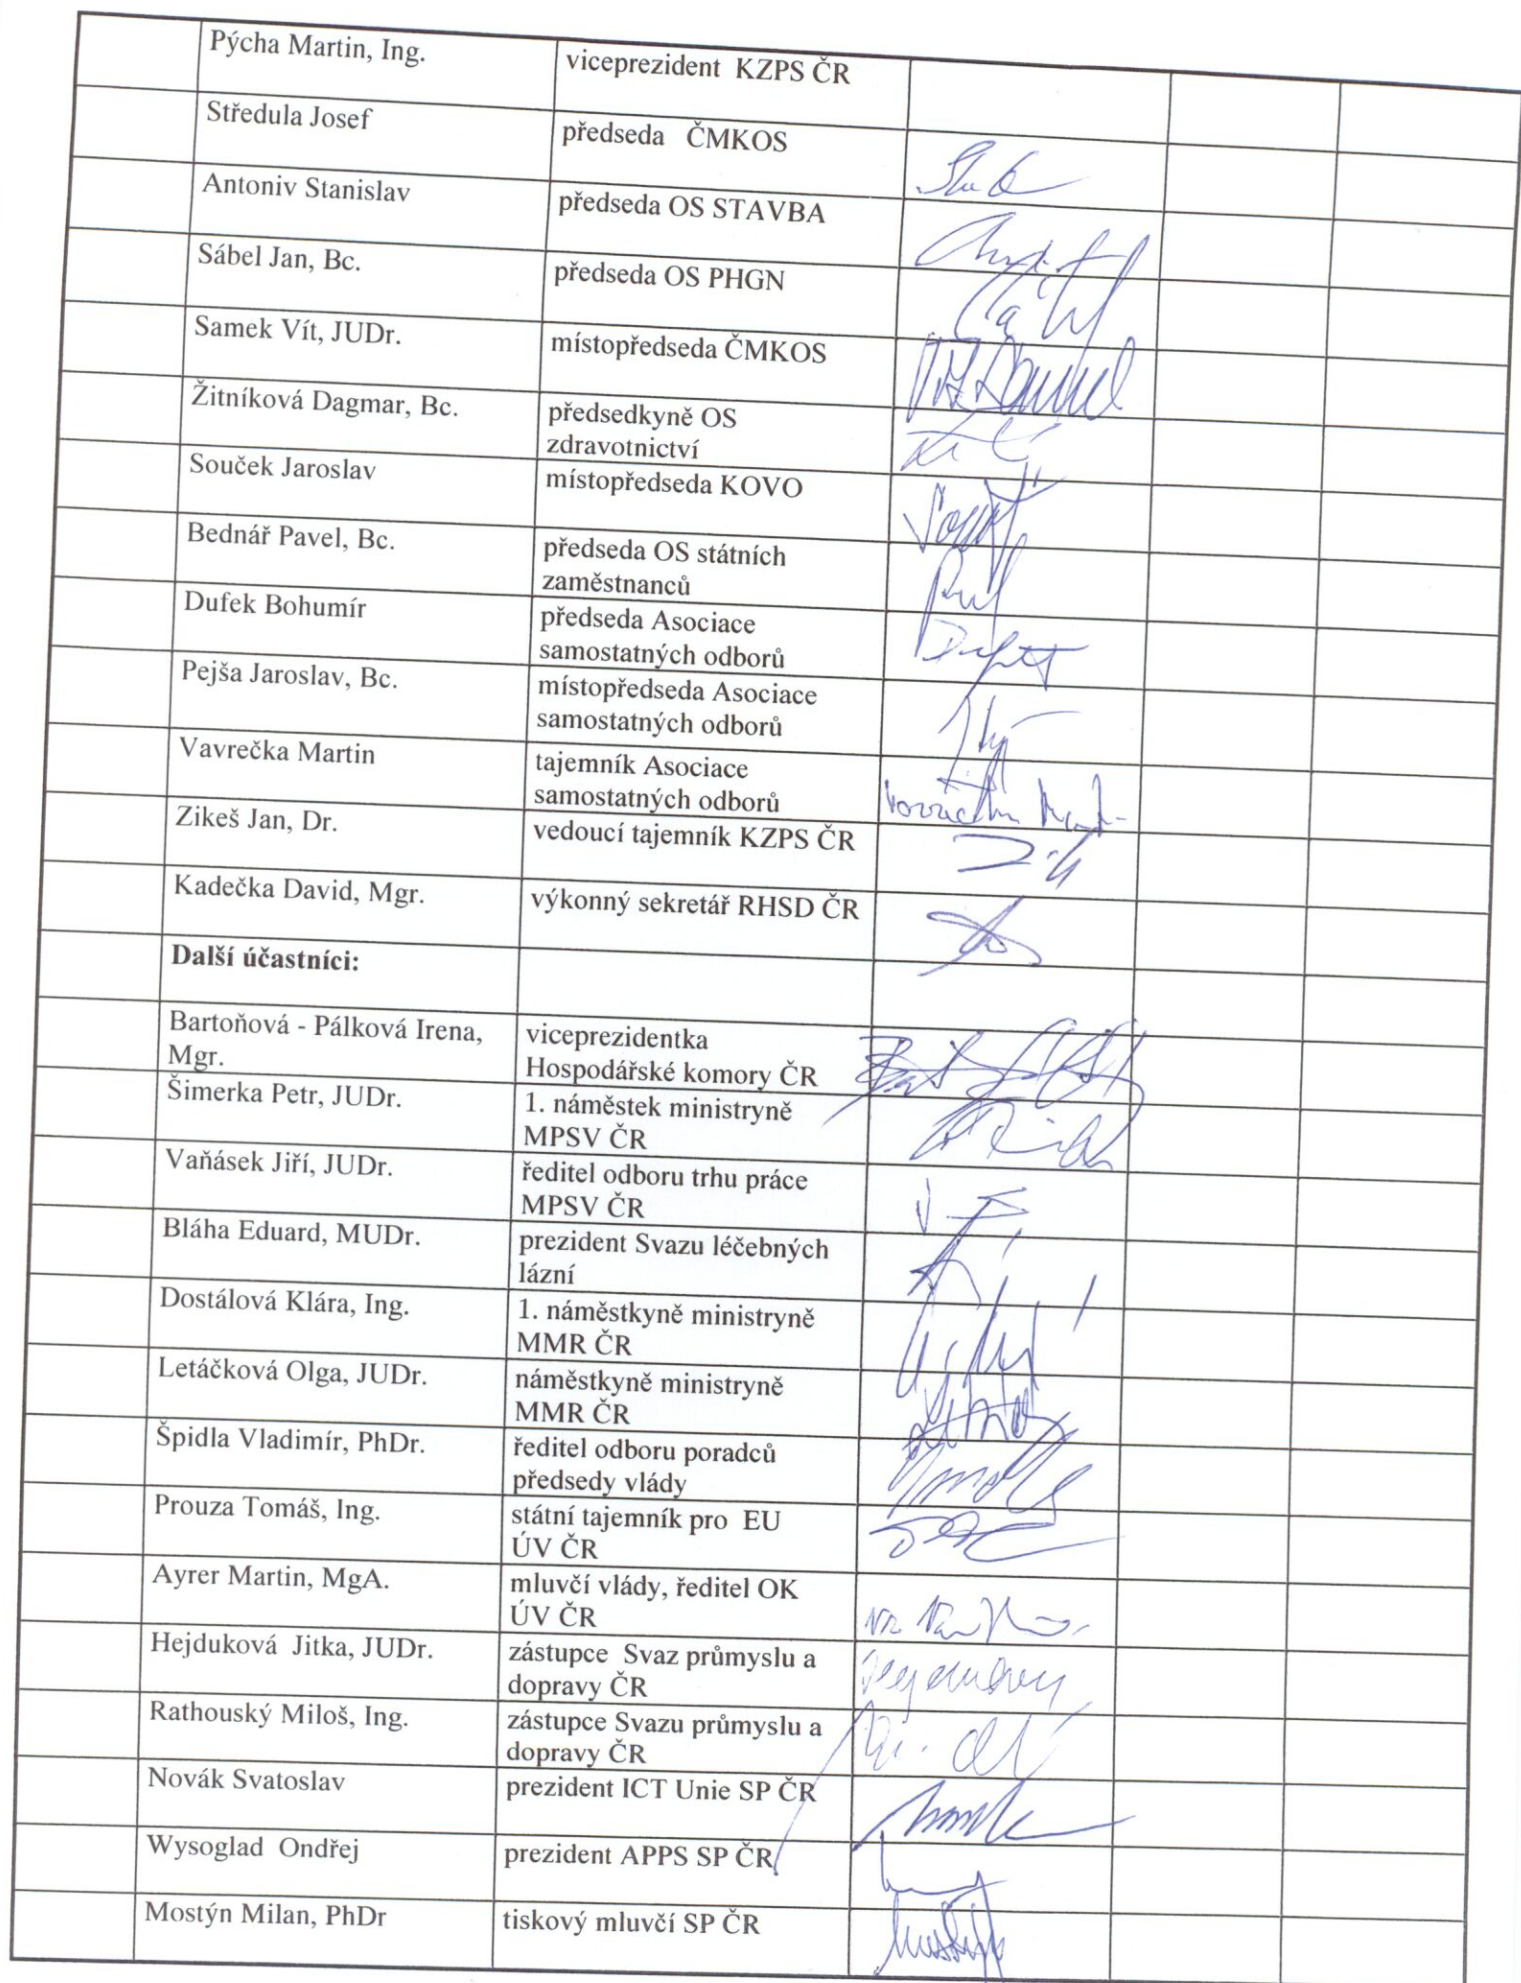 Pýcha Martin, Ing.
viceprezident KZPS ČR
Středula Josef
předseda ČMKOS
Antoniv Stanislav
předseda OS STAVBA
Sábel Jan, Bc.
předseda OS PHGN
Samek Vít, JUDr.
místopředseda ČMKOS
Žitníková Dagmar, Bc.
předsedkyně OS
zdravotnictví
Souček Jaroslav
místopředseda KOVO
Bednář Pavel, Bc.
předseda OS státních
zaměstnanců
Dufek Bohumír
předseda Asociace
samostatných odborů
Pejša Jaroslav, Bc.
místopředseda Asociace
samostatných odborů
Vavrečka Martin
tajemník Asociace
samostatných odborů
Zikeš Jan, Dr.
vedoucí tajemník KZPS ČR
Kadečka David, Mgr.
výkonný sekretář RHSD ČR
Další účastníci:
Bartoňová - Pálková Irena,
Mgr.
viceprezidentka
Hospodářské komory ČR
Šimerka Petr, JUDr.
1. náměstek ministryně
MPSV ČR
Vaňásek Jiří, JUDr.
ředitel odboru trhu práce
MPSV ČR
Bláha Eduard, MUDr.
prezident Svazu léčebných
lázní
Dostálová Klára, Ing.
1. náměstkyně ministryně
MMR ČR
Letáčková Olga, JUDr.
náměstkyně ministryně
MMR ČR
Špidla Vladimír, PhDr.
ředitel odboru poradců
předsedy vlády
Prouza Tomáš, Ing.
státní tajemník pro EU
ÚV ČR
Ayrer Martin, MgA.
mluvčí vlády, ředitel OK
ÚV ČR
Hejduková Jitka, JUDr.
zástupce Svaz průmyslu a
dopravy ČR
Rathouský Miloš, Ing.
zástupce Svazu průmyslu a
dopravy ČR
Novák Svatoslav
prezident ICT Unie SP ČR
Wysoglad Ondřej
prezident APPS SP ČR
Mostýn Milan, PhDr
tiskový mluvčí SP ČR